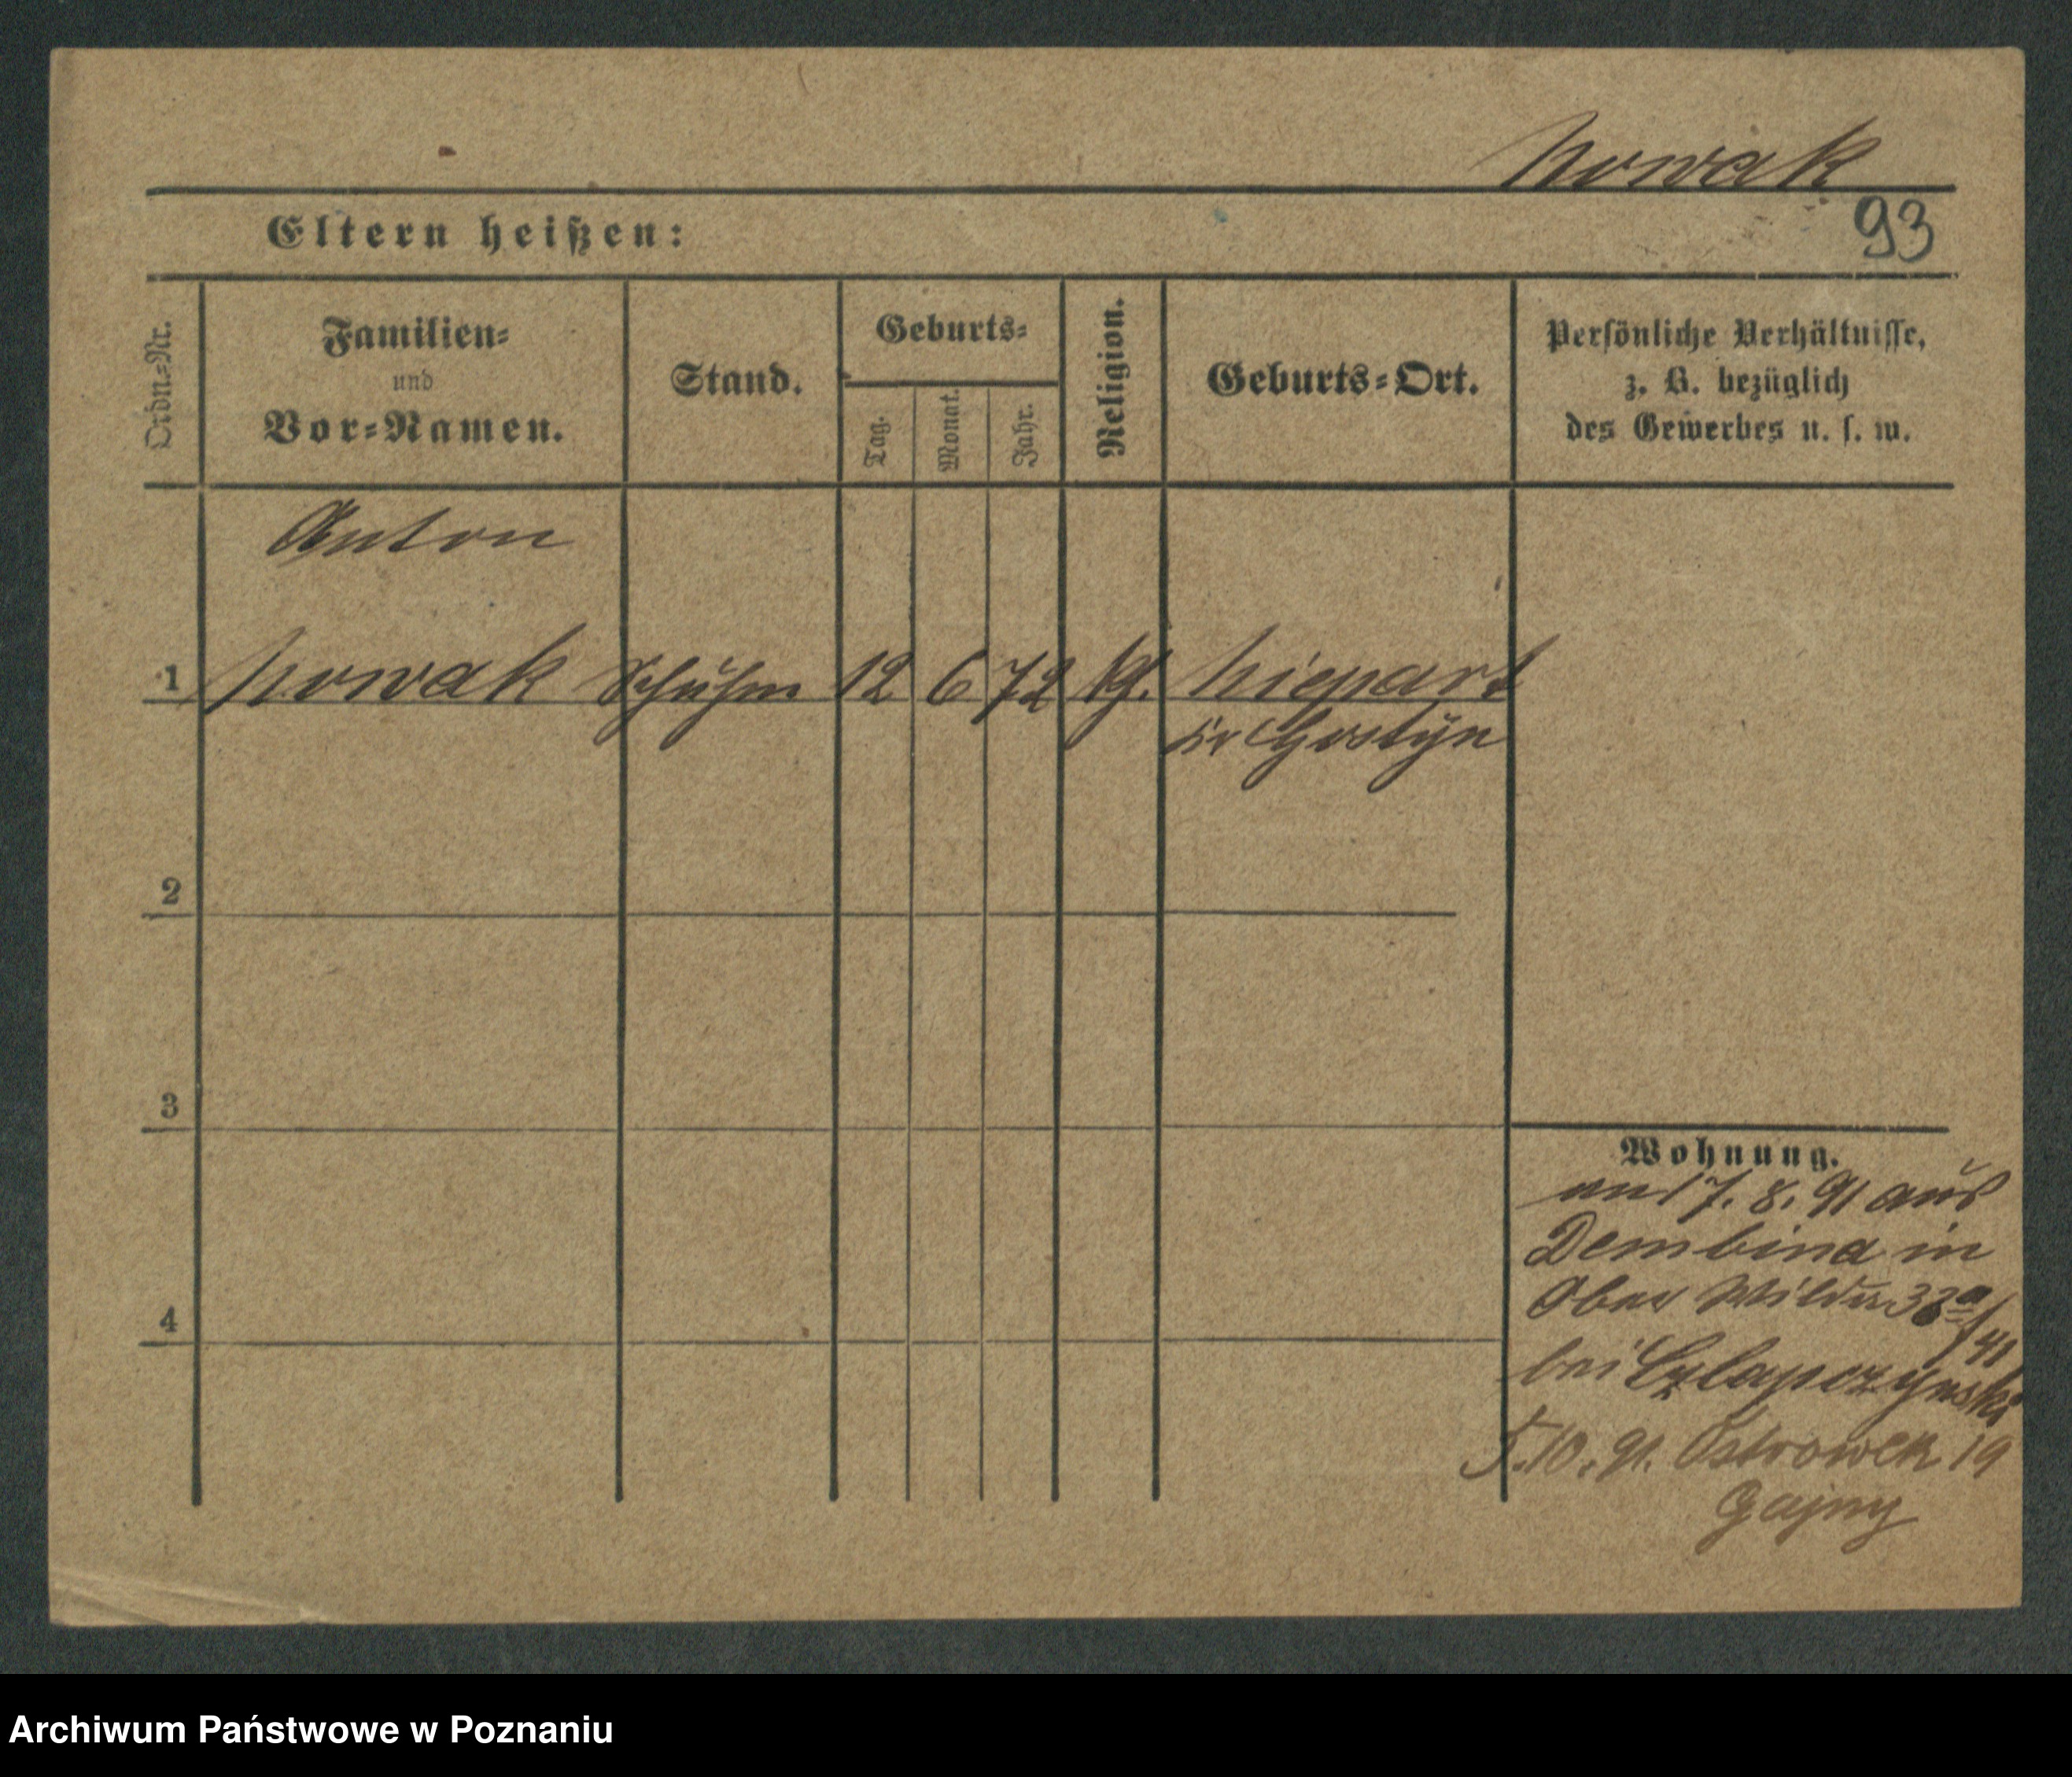 Nowak
Eltern heißen:
93
Ordn.-Nr.
Familien-
und
Vor-Namen.
Stand.
Geburts-
Tag.
Monat.
Jahr.
Religion.
Geburts-Ort.
Persönliche Verhältnisse,
z. B. bezüglich
des Gewerbes u. s. w.
Anton
1 Nowak Schuhm 12 6 72 kt. Niepart
Kr Gostyn
2
3
4
Wohnung.
17. 8. 91 aus
Dembina in
Ober Wilda
41
bei
5.10.91. Ostrowek 19
Gajny
Archiwum Państwowe w Poznaniu